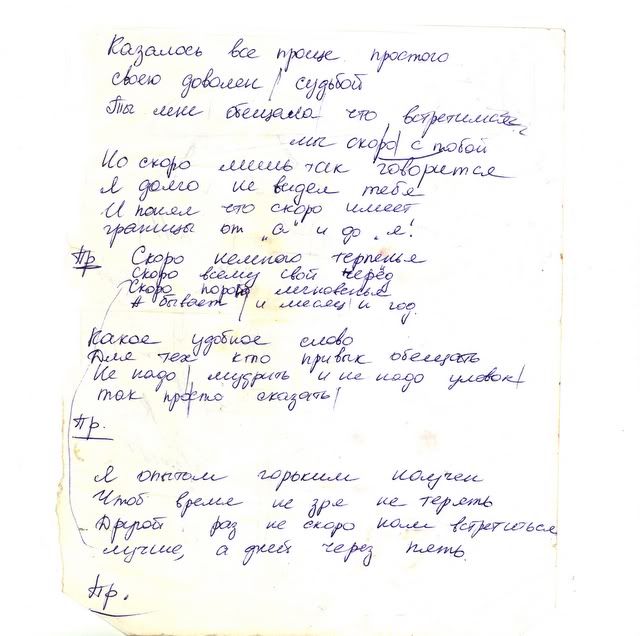 Казалось все проще простого
своею доволен / судьбой
Ты мне обещала что встретимся
мы скоро / с тобой
Но скоро лишь так говорится
Я долго не видел тебя
И понял что скоро имеет
границы от „а" и до „я"!
Пр Скоро немного терпенья
Скоро всему свой черёд
Скоро порой мгновенье
А бывает / и месяц и год.
Какое удобное слово
Для тех кто привык обещать
Не надо / мудрить и не надо уловок /
так просто сказать /
Пр.
Я опытом горьким научен
Чтоб время не зря не терять
Другой раз не скоро нам встретиться
лучше, а дней через пять.
Пр.